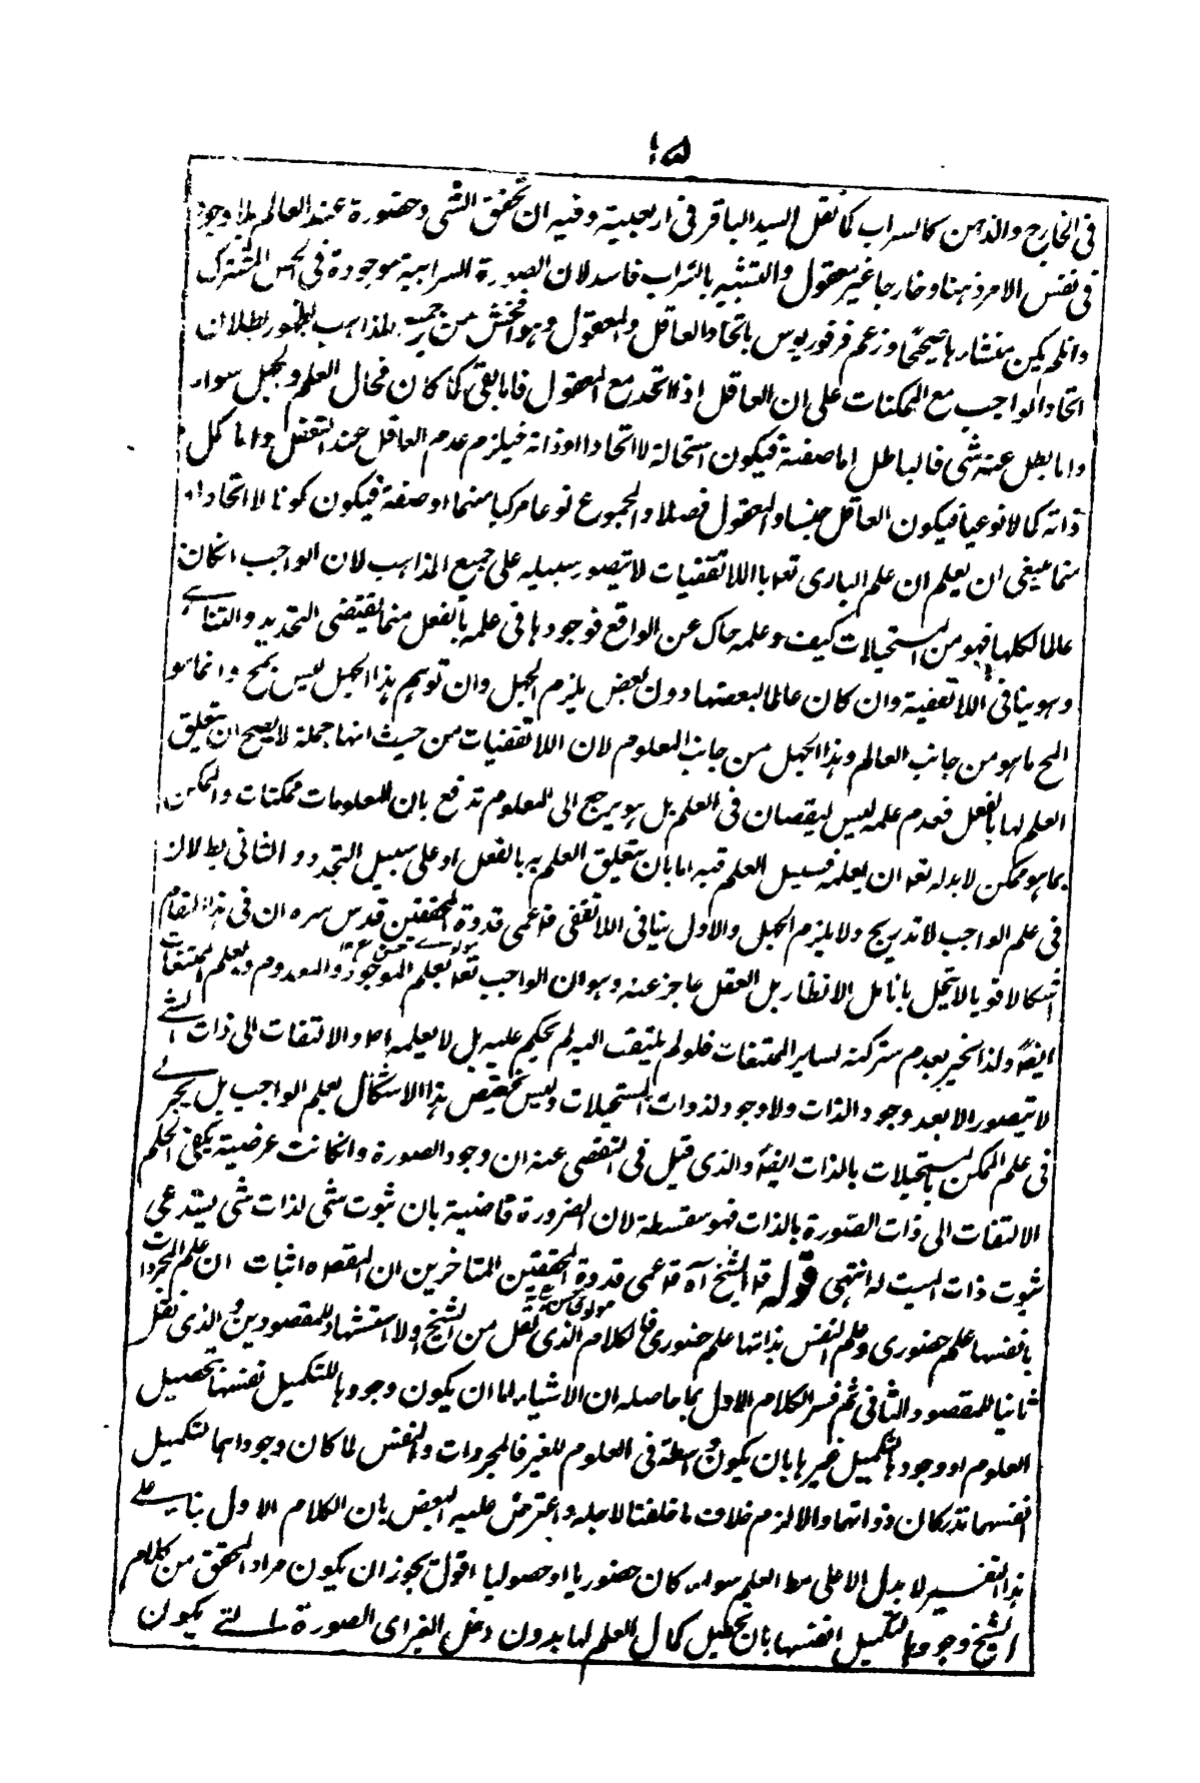 ١٥
فى الخارج والذهن كالسراب كما نقل السيد الباقر فى اربعينية وفيه ان تحقق الشى وحضوره عند العالم بلا وجود
فى نفس الامر ذهنا وخارجا غير معقول والتشبيه بالسراب فاسد لان الصورة السرابية موجودة فى الحس المشترك
وان لم يكن منشأ رها صحيحا وزعم فرفوريوس باتحاد العاقل والمعقول وهو افحش من جميع المذاهب لظهور بطلان
اتحاد الواجب مع الممكنات على ان العاقل اذا اتحد مع المعقول فاما بقى كما كان فحال العلم والجهل سواء
واما بطل عنه شى فالباطل اما صفته فيكون استحالة لا اتحادا او ذاته فيلزم عدم العاقل عند التعقل واما كمل
ذاته كمالا نوعيا فيكون العاقل جنسا والمعقول فصلا والمجموع نوعا مركبا منهما او صفة فيكون كونا لا اتحادا
مما ينبغى ان يعلم ان علم البارى تعه باللاتقفيات لا يتصور سبيله على جميع المذاهب لان الواجب انكان
عالما لكلها فهو من المستحيلات كيف وعلمه حاك عن الواقع فوجودها فى علمه بالفعل منها يقتضى التحديد والتناهى
وهو ينافى اللاتقفية وان كان عالما لبعضها دون بعض يلزم الجهل وان توهم هذا الجهل ليس بمح وانما هو
المح ما هو من جانب العالم وهذا الجهل من جانب المعلوم لان اللاتقفيات من حيث انها جملة لا يصح ان يتعلق
العلم لها بالفعل فعدم علمه ليس لنقصان فى العلم بل هو يرجع الى المعلوم تدفع بان المعلومات ممكنات والممكن
بما هو ممكن لا بد له تعه ان يعلمه فسبيل العلم فيه اما بان يتعلق العلم به بالفعل او على سبيل التجدد والثانى بط لان
فى علم الواجب لا تدريج ولا يلزم الجهل والاول ينافى اللاتقفى قه عمى قدوة المحققين قدس سره ان فى هذا المقام
اشكالا قويا لا ينحل بانامل الانظار بل العقل عاجز عنه وهو ان الواجب تعه يعلم الموجود والمعدوم ويعلم الممتنعات
ايضا ولذا يخبر بعدم شركته لساير الممتنعات فلو لم يلتفت اليه لم يحكم عليه بل لا يعلمه اصلا والالتفات الى ذات الشى
لا يتصور الا بعد وجود الذات ولا وجود لذوات المستحيلات وليس تخصيص هذا الاشكال بعلم الواجب بل يجرى
فى علم الممكن بالمستحيلات بالذات ايضا والذى قيل فى التفصى عنه ان وجود الصورة وانكانت عرضية يكفى الحكم
الالتفات الى ذات الصورة بالذات فهو سفسطة لان الضرورة قاضية بان ثبوت شى لذات شى يستدعى
ثبوت ذات المثبت له انتهى قوله قه الشيخ آه قه عمى قدوة المحققين المتاخرين ان المقصود اثبات ان علم المجردات
بانفسها علم حضورى وعلم النفس بذاتها علم حضورى فالكلام الذى نقل من الشيخ اولا استشهاد للمقصودين والذى نقل
ثانيا للمقصود الثانى ثم فسر الكلام الاول بما حاصله ان الاشياء اما ان يكون وجودها لتكميل نفسها بتحصيل
العلوم او وجودها لتكميل غيرها بان يكون واسطة فى العلوم للغير فالمجردات والنفس لما كان وجودهما لتكميل
انفسهما تدركان ذواتهما والا لزم خلاف ما خلقتا لاجله واعترض عليه البعض بان الكلام الاول بناء على
هذا التفسير لا يدل الا على مط العلم سواء كان حضوريا او حصوليا اقول يجوز ان يكون مراد المحقق من كلام
الشيخ وجودها لتكميل انفسها بان تحصيل كمال العلم لها بدون دخل الغير اى الصورة التى يكون